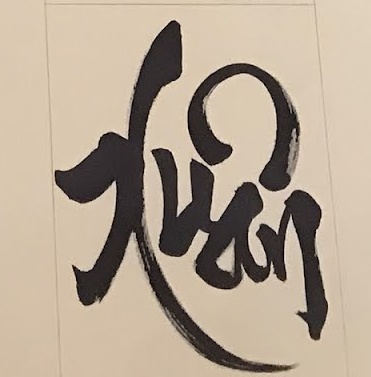 Xuân